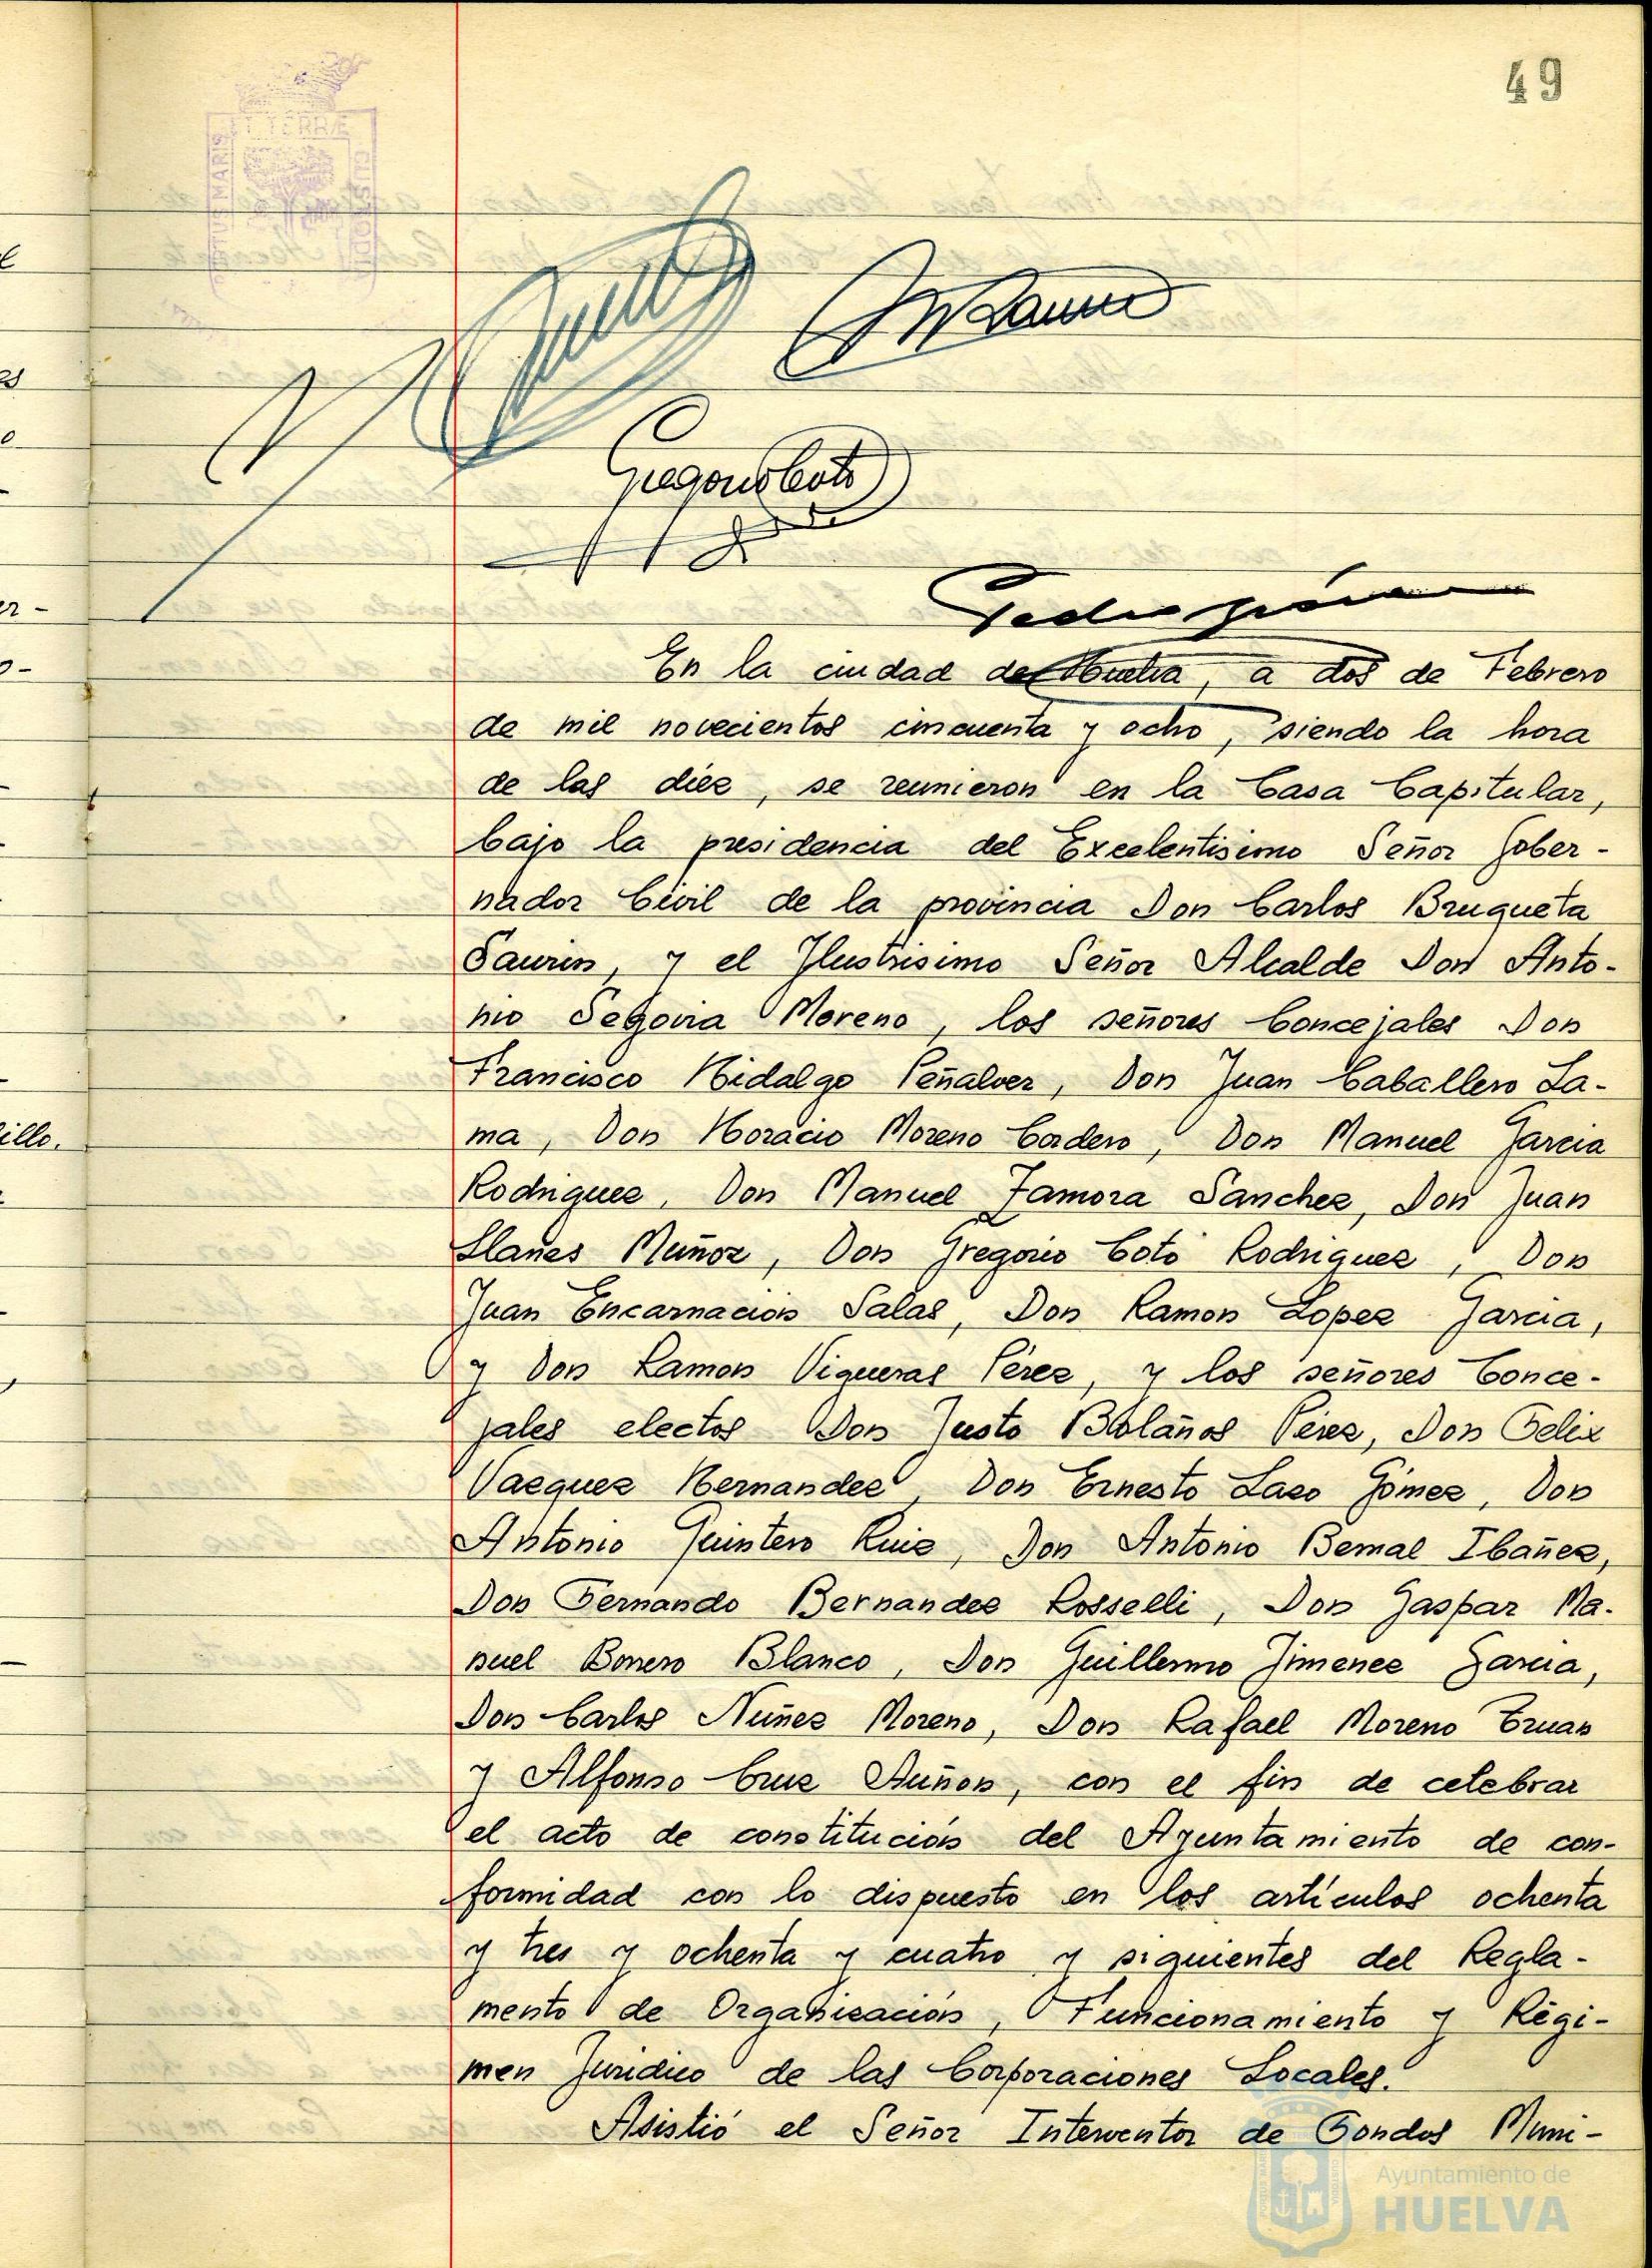 49
PORTUS MARIS
ET TERRÆ
CUSTODIA
Gregorio Coto
En la ciudad de Huelva, a dos de Febrero
de mil novecientos cincuenta y ocho, siendo la hora
de las diez, se reunieron en la Casa Capitular,
bajo la presidencia del Excelentisimo Señor Gober-
nador Civil de la provincia Don Carlos Bruqueta
Saurin, y el Ilustrisimo Señor Alcalde Don Anto-
nio Segovia Moreno, los señores Concejales Don
Francisco Hidalgo Peñalver, Don Juan Caballero La-
ma, Don Horacio Moreno Cordero, Don Manuel Garcia
Rodriguez, Don Manuel Zamora Sanchez, Don Juan
Llanes Muñoz, Don Gregorio Coto Rodriguez, Don
Juan Encarnación Salas, Don Ramon Lopez Garcia,
y Don Ramon Vigueras Pérez, y los señores Conce-
jales electos Don Justo Bolaños Pérez, Don Felix
Vazquez Hernandez, Don Ernesto Lazo Gómez, Don
Antonio Quintero Ruiz, Don Antonio Bernal Ibañez,
Don Fernando Bernandez Rosselli, Don Gaspar Ma-
nuel Borrero Blanco, Don Guillermo Jimenez Garcia,
Don Carlos Nuñez Moreno, Don Rafael Moreno Eruan
y Alfonso Cruz Auñon, con el fin de celebrar
el acto de constitución del Ayuntamiento de con-
formidad con lo dispuesto en los artículos ochenta
y tres y ochenta y cuatro y siguientes del Regla-
mento de Organización, Funcionamiento y Régi-
men Juridico de las Corporaciones Locales.
Asistió el Señor Interventor de Fondos Muni-
Ayuntamiento de
HUELVA